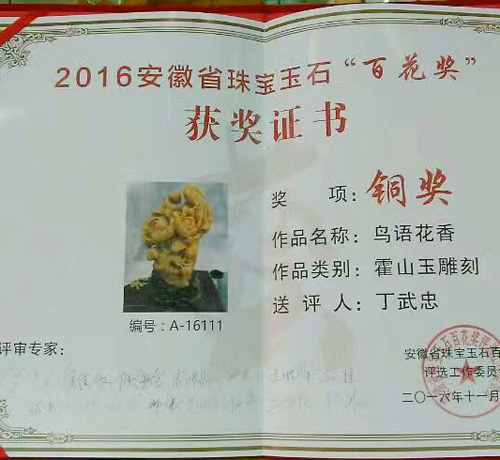 2016安徽省珠宝玉石“百花奖”
获奖证书
奖 项：铜奖
作品名称：鸟语花香
作品类别：霍山玉雕刻
送 评 人：丁武忠
编号：A-16111
评审专家：
安徽省珠宝玉石百
评选工作委员会
二〇一六年十一月